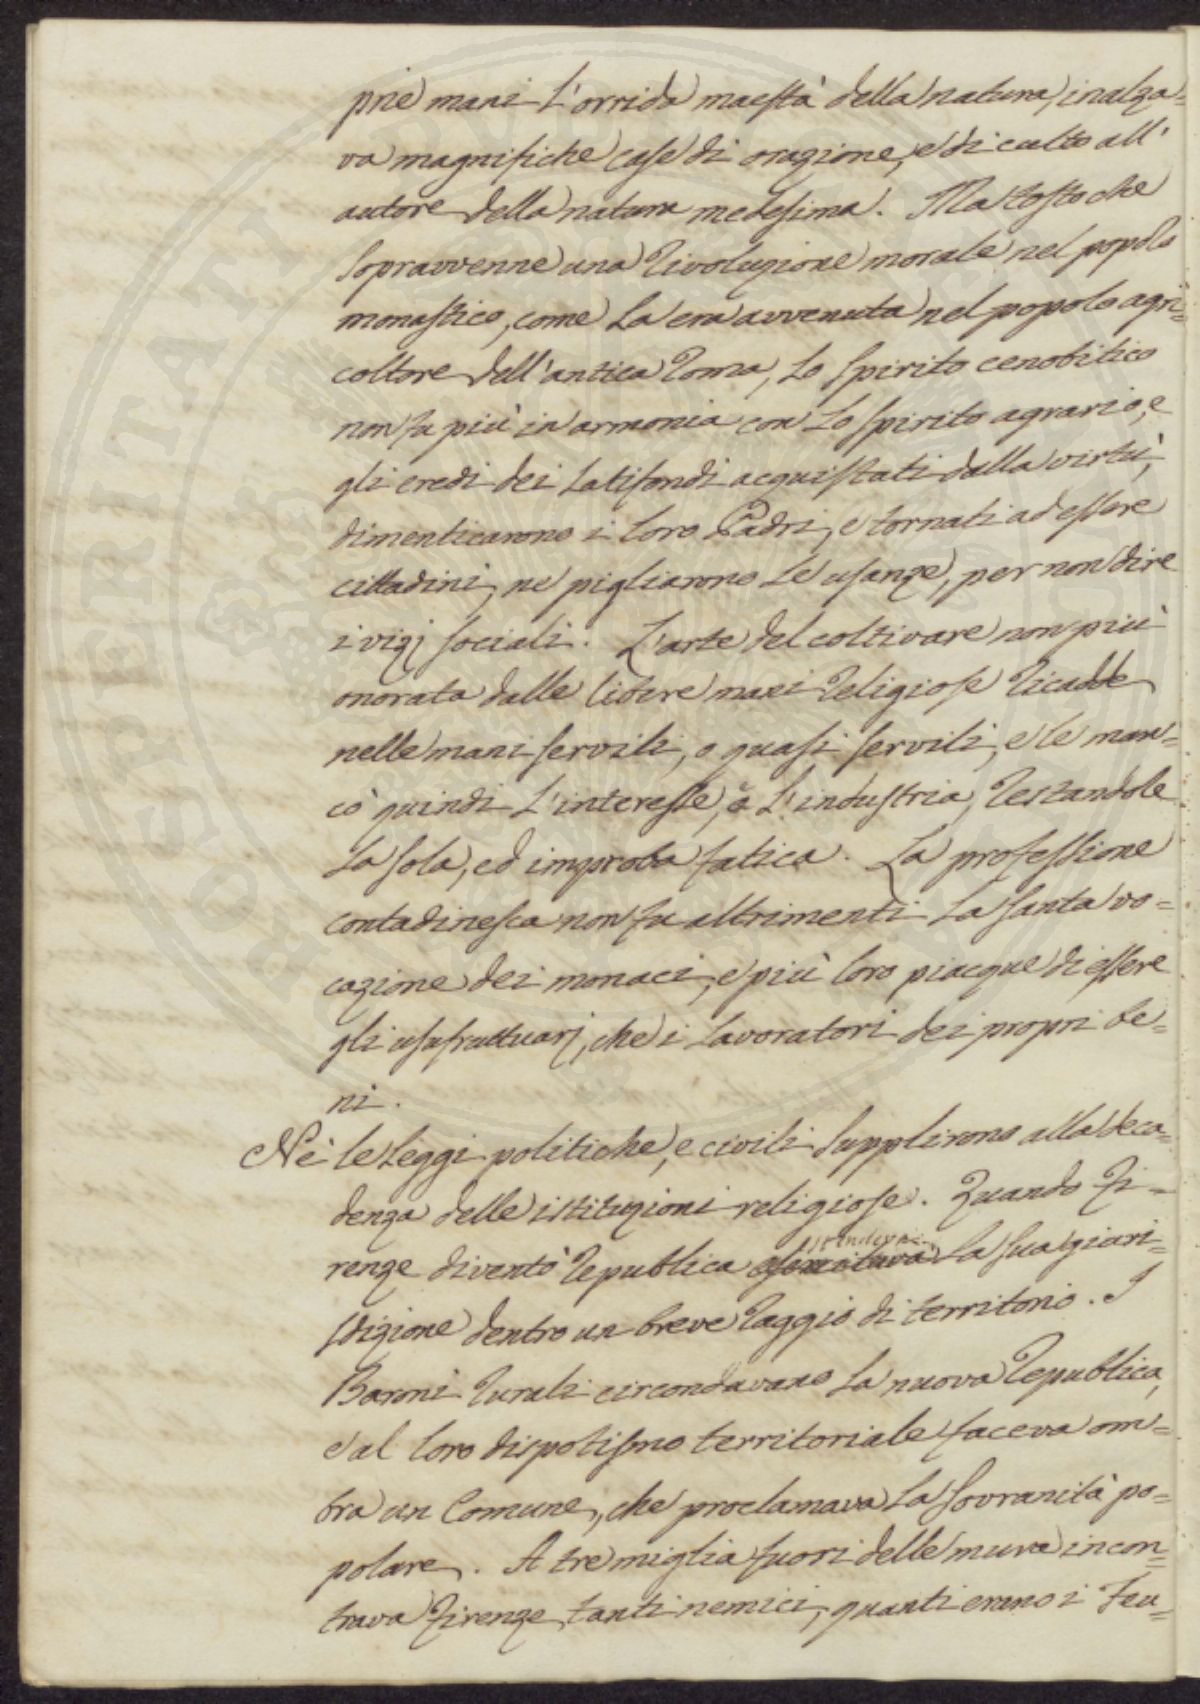 prie mani l'orrida maestà della natura, inalza=
va magnifiche case di orazione, e di culto all'
autore della natura medesima. Ma tosto che
sopravvenne una rivoluzione morale nel popolo
monastico, come la era avvenuta nel popolo agri=
coltore dell'antica Roma, lo spirito cenobitico
non fu più in armonia con lo spirito agrario, e
gli eredi dei latifondi acquistati dalla virtù,
dimenticarono i loro Padri, e tornati ad essere
cittadini, ne pigliarono le usanze, per non dire
i vizj sociali. L'arte del coltivare non più
onorata dalle libere mani religiose ricadde
nelle mani servili, o quasi servili, e le man=
cò quindi l'interesse, e l'industria, restandole
la sola, ed improba fatica. La professione
contadinesca non fu altrimenti la santa vo=
cazione dei monaci, e più loro piacque di essere
gli usufruttuarj, che i lavoratori dei propri be=
ni.
Nè le leggi politiche, e civili supplirono alla deca=
denza delle istituzioni religiose. Quando Fi=
renze diventò republica stendeva la sua giuri=
sdizione dentro un breve raggio di territorio. I
Baroni rurali circondavano la nuova republica,
e al loro dispotismo territoriale faceva om=
bra un Comune, che proclamava la sovranità po=
polare. A tre miglia fuori delle mura incon=
trava Firenze tanti nemici, quanti erano i Feu=